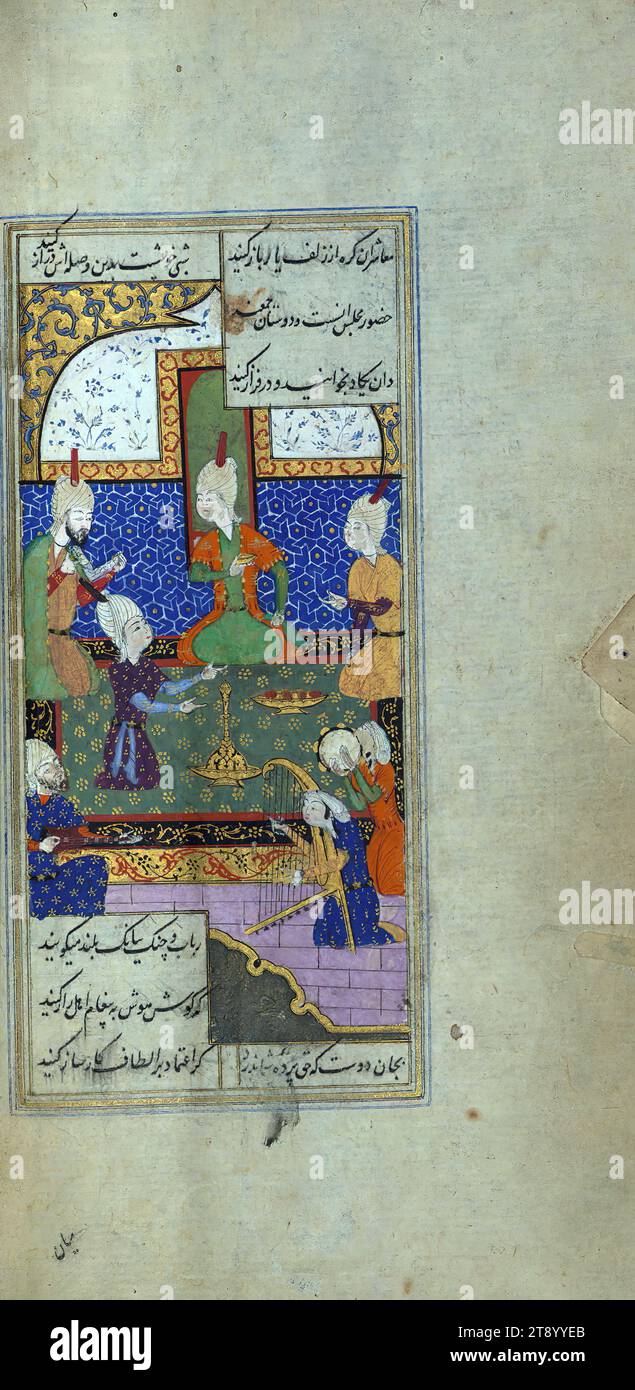 معاشران گره از زلف یار باز کنید
شبی خوشست بدین وصله‌اش دراز کنید
حضور مجلس انست و دوستان جمعند
وان یکاد بخوانید و در فراز کنید
رباب و چنگ ببانگ بلند میگویند
که گوش هوش به پیغام اهل راز کنید
بجان دوست که غم پرده شما ندرد
گر اعتماد بر الطاف کارساز کنید
میان
alamy
Image ID: 2T8YYEB
www.alamy.com